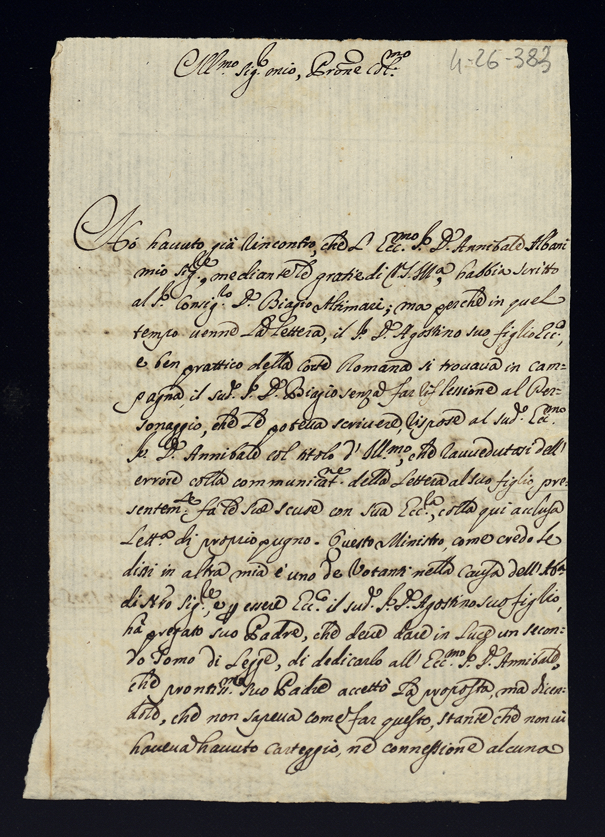 4-26-383
Ill.mo Sig.r mio, Prone Col.mo
Hò havuto già l'incontro, che L'Ecc.mo S.r D. Annibale Albani
mio Sig.re, mediante le gratie di V.S. Ill.a, habbia scritto
al S.r Consig.lo D. Biagio Altimari; ma perche in quel
tempo venne la lettera, il S.r D. Agostino suo figlio Ecc.o,
e ben prattico della Corte Romana si trovava in cam=
pagna, il sud.o S.r D. Biagio senza far riflessione al Per=
sonaggio, che le poteva scrivere, rispose al sud.o Ecc.mo
S.r D. Annibale col titolo d'Ill.mo, che ravvedutasi dell'
errore colla communicat.ne della lettera al suo figlio, pre=
sentem.te fa le sue scuse con Sua Ecc.a, colla qui acclusa
Lett.a di proprio pugno. Questo Ministro, come credo le
dissi in altra mia è uno de Votanti nella Causa dell'
di Nro Sig.re, e p essere Ecc.o il sud.o S.r D. Agostino suo figlio,
hà pregato suo Padre, che deve dare in Luce un secon=
do Tomo di Legge, di dedicarlo all'Ecc.mo S.r D. Annibale,
che pronta.te suo Padre accettò la proposta, ma dicen=
dole, che non sapeva come far questo, stante che non vi
haveva havuto carteggio, ne connessione alcuna